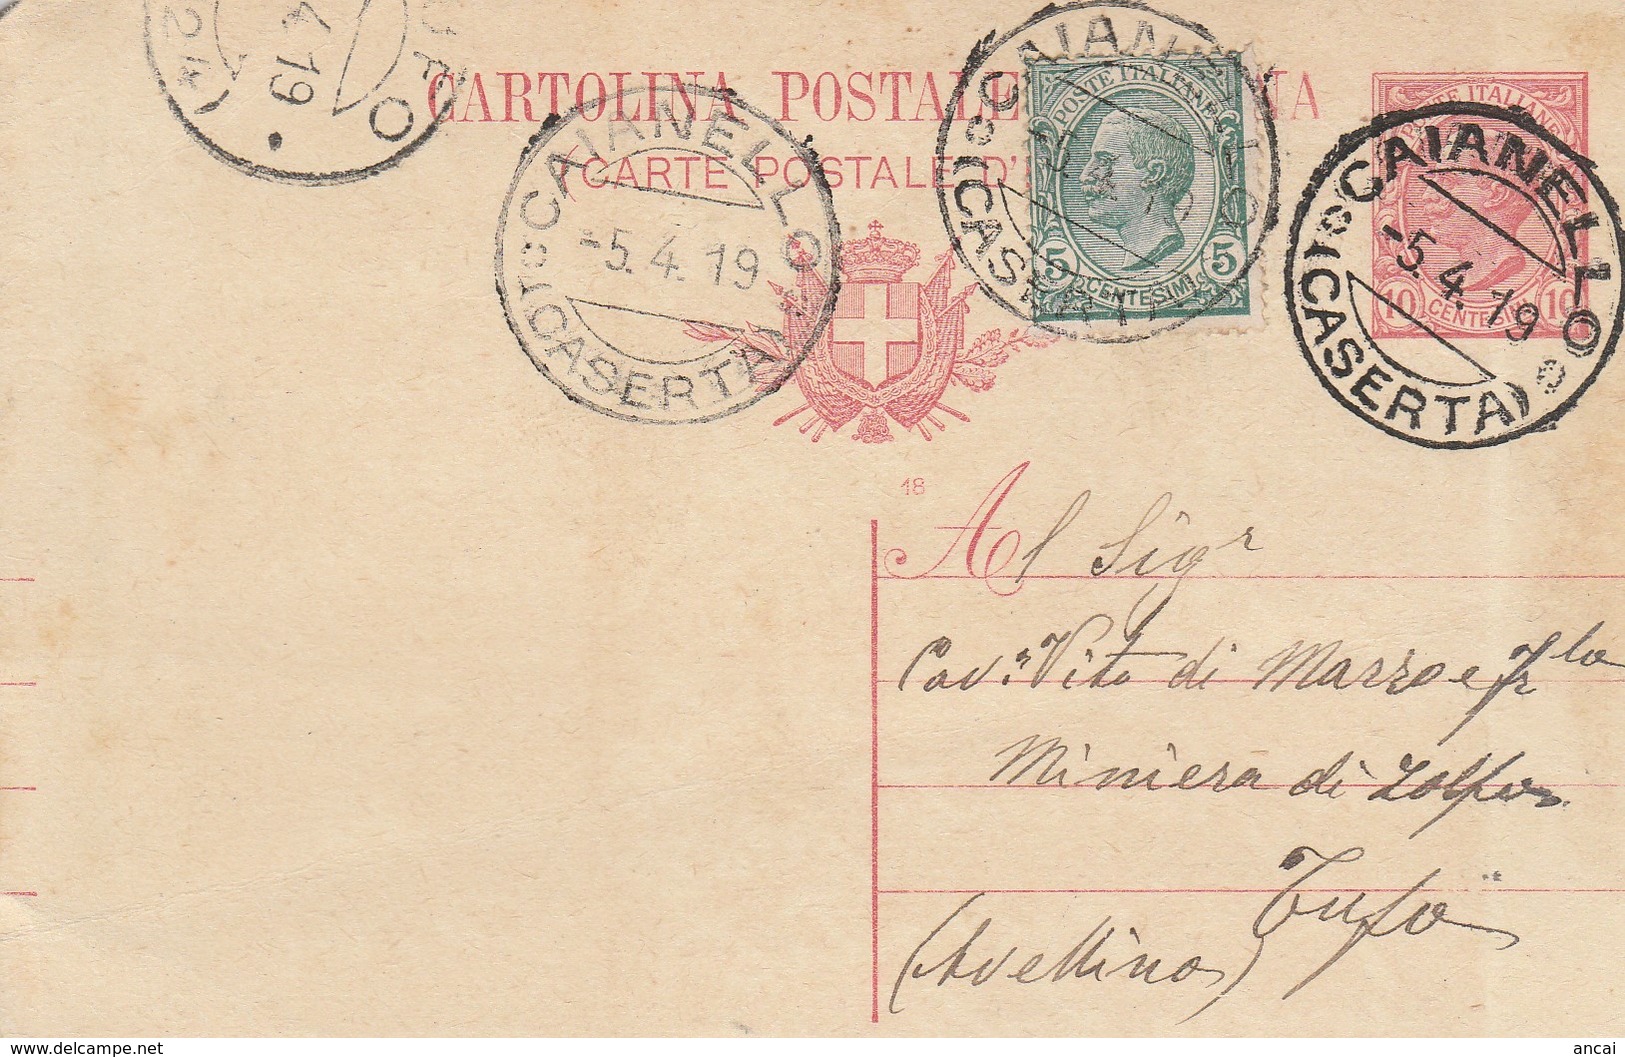 TUFO
4 19
CARTOLINA POSTALE
(CARTE POSTALE D'
CAIANELLO
-5.4.19
(CASERTA)
CAIANELLO
(CASERTA)
POSTE ITALIANE
5 CENTESIMI 5
POSTE ITALIANE
10 CENTESIMI 10
CAIANELLO
-5.4.19
(CASERTA)
18
Al Sigr
Cav.r Vito di Marzo e Flo
Miniera di Zolfo
Tufo
(Avellino)
www.delcampe.net
ancai